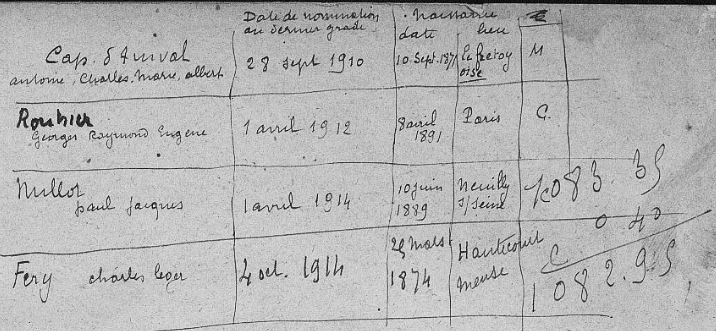 Date de nomination
au dernier grade
naissance
date
lieu
Cap. d'
antoine, Charles. Marie, albert
28 sept 1910
10. Sept.
oise
M
Rouhier
Georges Raymond Eugène
1 avril 1912
8 avril
1891
Paris
C.
paul jacques
1 avril 1914
10 juin
1889
Neuilly
s/ seine
083.35
0 40
Fery charles leger
4 oct. 1914
25 mars
1874
meuse
1 082.95